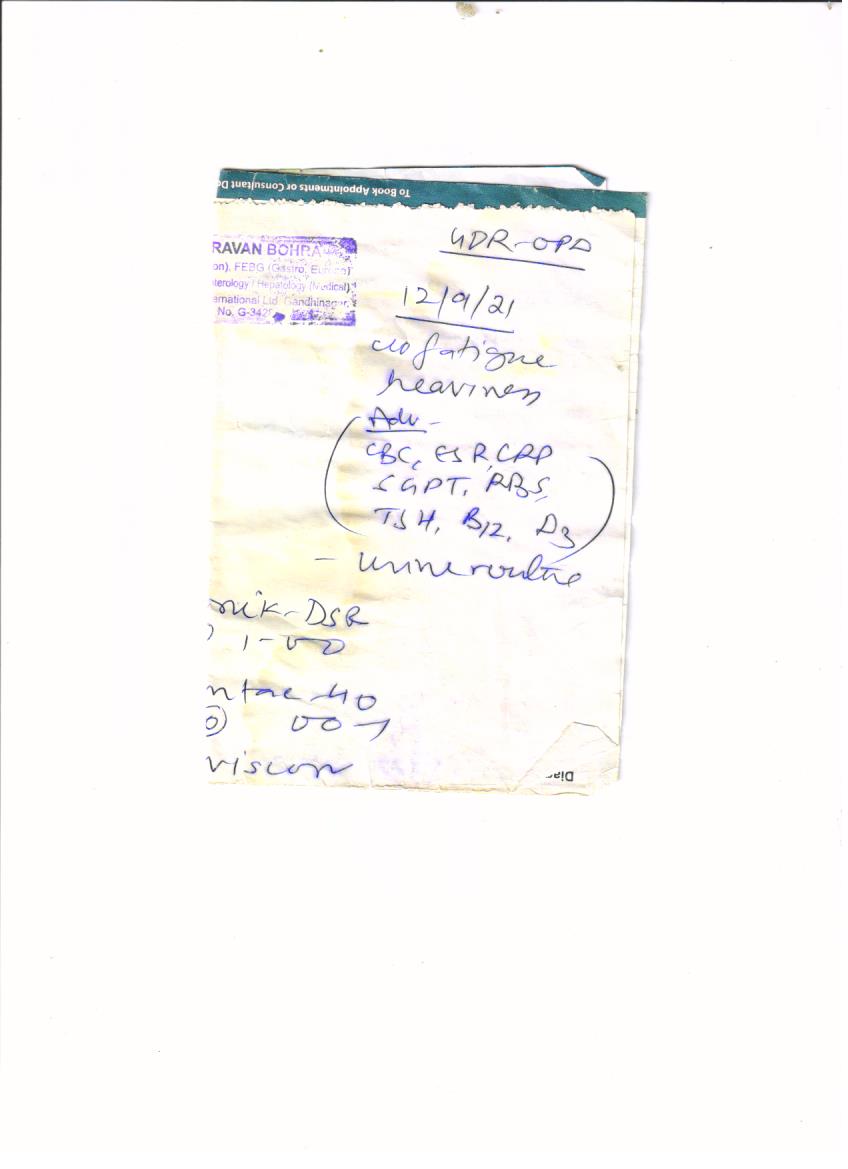 To Book Appointments or Consultant Do
RAVAN BOHRA
on), FEBG (Gastro, Europe)
terology / Hepatology (Medical)
ernational Ltd. Gandhinagar.
No. G-342
GDR-OPD
12/9/21
c/o fatigue
heaviness
Adv -
CBC, ESR, CRP
SGPT, RBS,
TSH, B12, D3
- urine routine
DSR
1-00
40
001
Diag